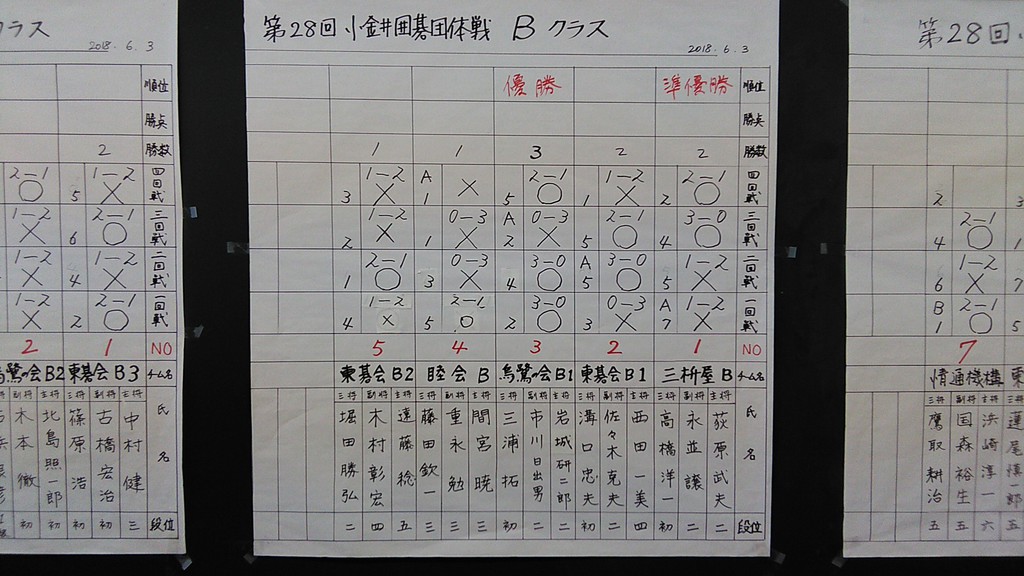 クラス
2018. 6. 3
順位
勝点
2 勝数
2-1 ○ 5 1-2 × 四回戦
1-2 × 6 2-1 ○ 三回戦
1-2 × 4 1-2 × 二回戦
1-2 × 2 2-1 ○ 一回戦
2 1 NO
鷺の会B2 東碁会B3 チーム名
副将 主将 三将 副将 主将
木本 徹 北島照一郎 篠原 浩 古橋宏治 中村 健 氏名
初 初 初 初 三 段位
第28回小金井囲碁団体戦 B クラス
2018. 6. 3
優勝 準優勝 順位
勝点
1 1 3 2 2 勝数
3 1-2 × A 1 × 5 2-1 ○ 1 1-2 × 2 2-1 ○ 四回戦
2 1-2 × 1 0-3 × A 2 0-3 × 5 2-1 ○ 4 3-0 ○ 三回戦
1 2-1 ○ 3 0-3 × 4 3-0 ○ A 5 3-0 ○ 5 1-2 × 二回戦
4 1-2 × 5 2-1 ○ 2 3-0 ○ 3 0-3 × A 7 1-2 × 一回戦
5 4 3 2 1 NO
東碁会B2 睦会 B 烏鷺の会B1 東碁会B1 三析屋 B チーム名
三将 副将 主将 三将 副将 主将 三将 副将 主将 三将 副将 主将 三将 副将 主将
堀田勝弘 木村彰宏 遠藤 稔 藤田欽一 重永 勉 間宮 暁 三浦 拓 市川日出男 岩城研二郎 溝口忠夫 佐々木克夫 西田一美 高橋洋一 永並 譲 荻原武夫 氏名
二 四 五 三 三 三 初 二 二 初 二 四 初 二 二 段位
第28回小
2
4 2-1 ○ 1
6 1-2 × 7
B 1 2-1 ○ 5
7
情通機構 東
三将 副将 主将 三将
鷹取耕治 国森裕生 浜崎淳一 蓮尾慎一郎
五 五 六 五